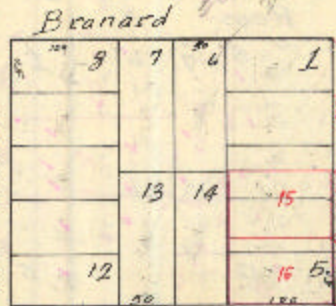 Branard
120 8 7 50 6 1
13 14 15
12 16 5
50 120